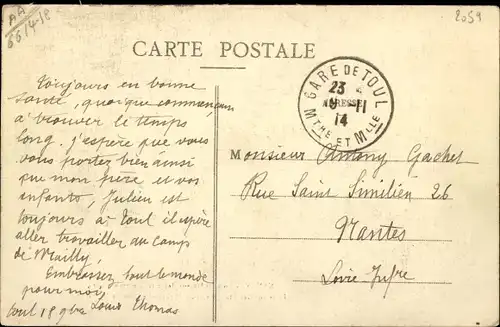 AA
66/4-12
2059
CARTE POSTALE
GARE DE TOUL
23
9-11
14
Mthe ET Mlle
Toujours en bonne
santé, quoique commençant
à trouver le temps
long. j'espère que vous
vous portez bien ainsi
que mon père et vos
enfants, Julien est
toujours à Toul il espère
aller travailler au camps
de Mailly,
Embrassez tout le monde
pour moi,
toul 18 9bre Louis Thomas
Monsieur Antony Gachet
Rue Saint Similien 26
Nantes
Loire Infre